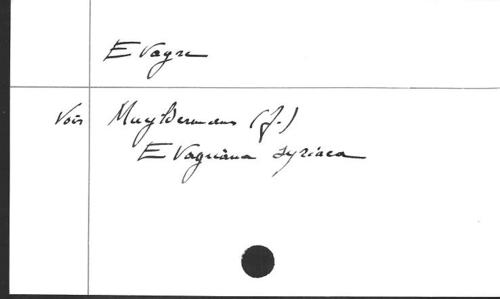 Evagre
Voir Muyldermans (J.)
Evagriana syriaca